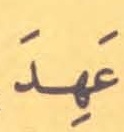 عَهِدَ